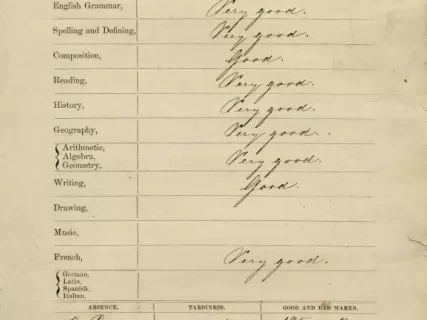 English Grammar, Very good.
Spelling and Defining, Very good.
Composition, Good.
Reading, Very good.
History, Very good.
Geography, Very good.
Arithmetic,
Algebra, Very good.
Geometry,
Writing, Good.
Drawing,
Music,
French, Very good.
German,
Latin,
Spanish,
Italian.
ABSENCE. TARDINESS. GOOD AND BAD MARKS.